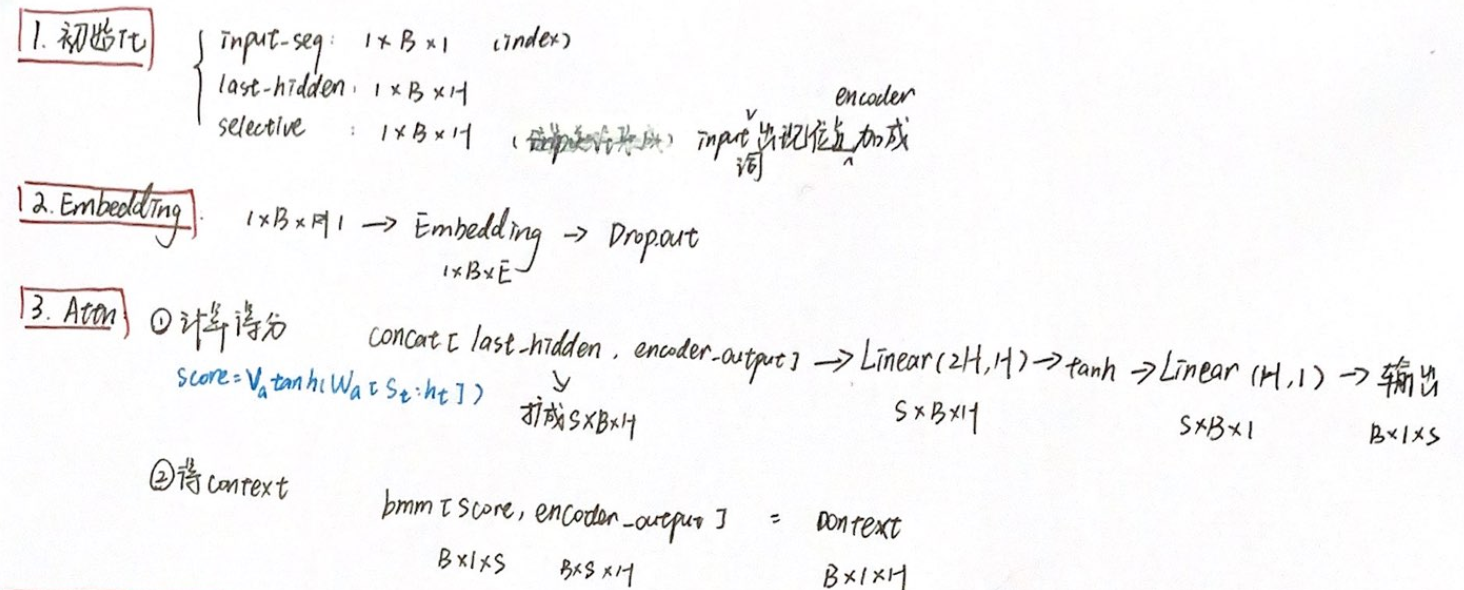 1. 初始化 input-seq: 1×B×1 (index)
last-hidden: 1×B×H
selective : 1×B×H ( ) input词出现位置encoder加成
2. Embedding: 1×B×1 → Embedding → Dropout
1×B×E
3. Attn ①计算得分 concat[last-hidden, encoder-output] → Linear(2H,H) → tanh → Linear(H,1) → 输出
score=Vₐtanh(Wₐ[Sₜ:hₜ]) 扩成S×B×H S×B×H S×B×1 B×1×S
②得context bmm[score, encoder_output] = context
B×1×S B×S×H B×1×H